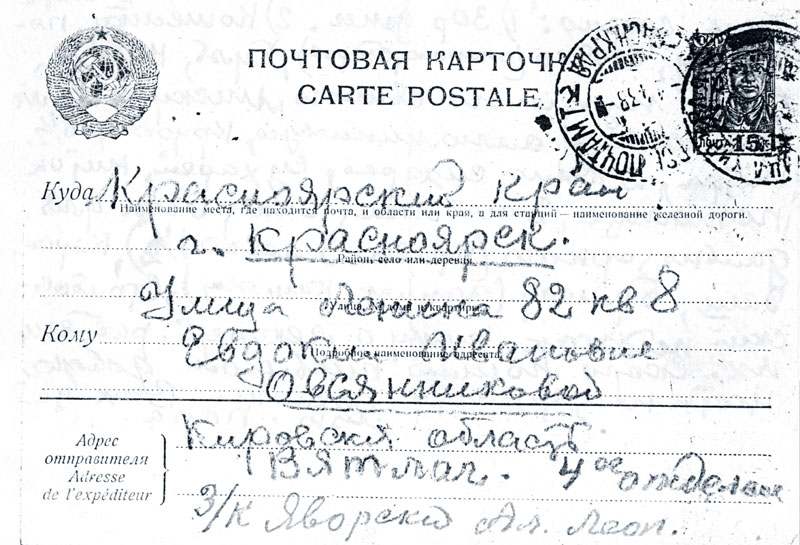 ПОЧТОВАЯ КАРТОЧК
CARTE POSTALE
Куда Красноярский край
Наименование места, где находится почта, и области или края, а для станций — наименование железной дороги.
г. Красноярск.
Район, село или деревня
Улица 82 кв 8
Кому
Подробное наименование адресата
Евдокии Ивановне
Овсянниковой
Адрес
отправителя
Adresse
de l'expéditeur
Кировская область
Вятлаг. 4ое отделен
З/К Яворский Ал. Леоп.
ПОЧТАМТ
ПОЧТА 15